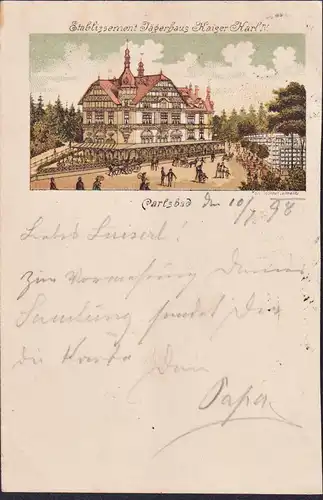 Etablissement Jägerhaus Kaiser Karl IV.
Carlsbad den 10/7 98
Liebes Luiserl!
Zur Vermehrung Deiner
Sammlung sendet Dir
die Karte Dein
Papa